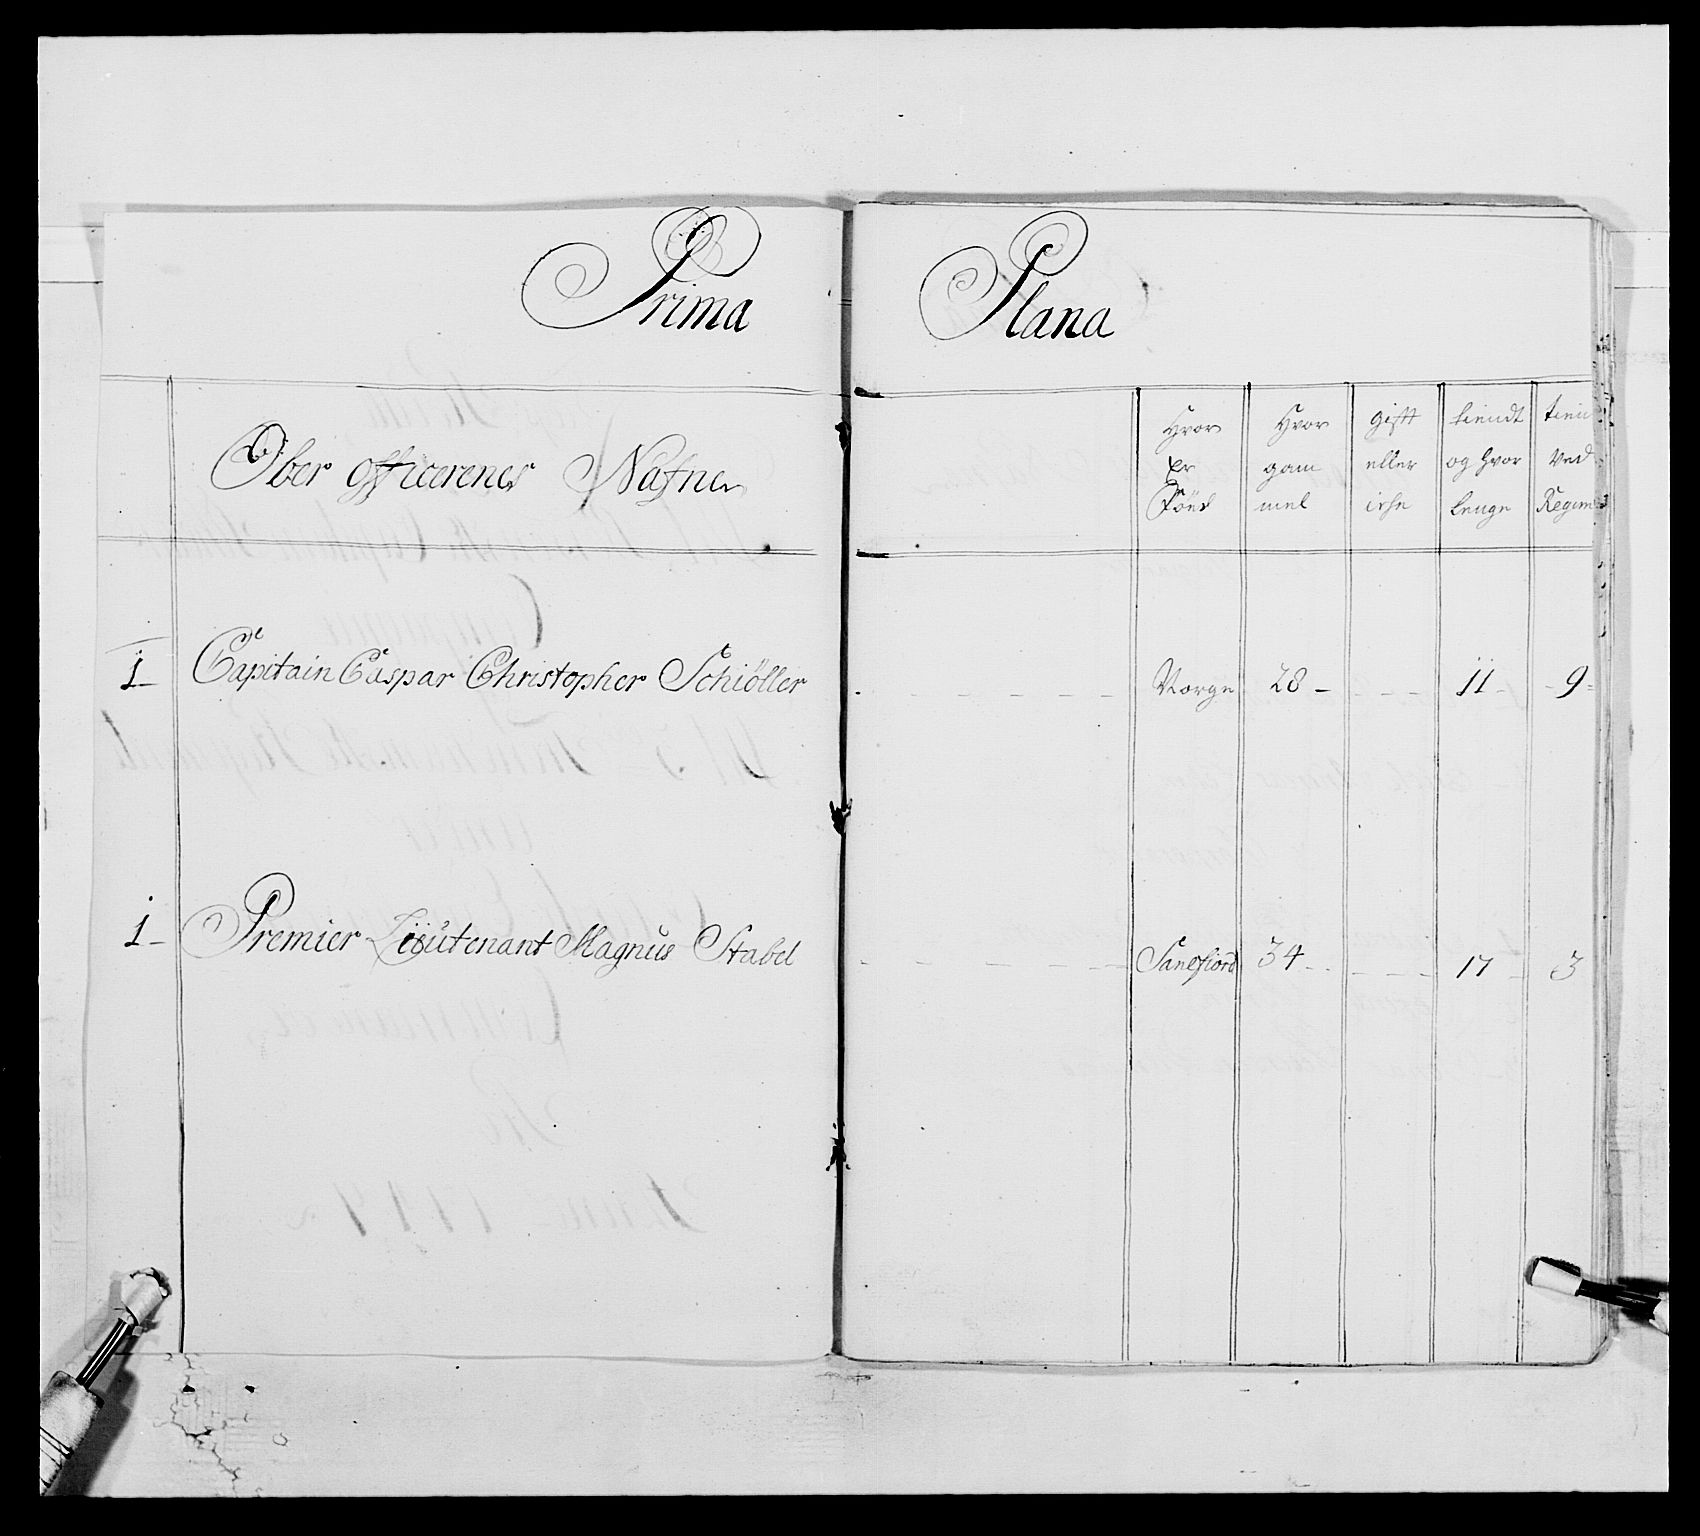 Prima Plana
Ober officerener Nafne
Hvor er Föed
Hvor gam mel
gift eller icke
tiendt og hvor lenge
tien ved Regim
1 Capitain Caspar Christopher Schiöller Norge 28 11 9
1 Premier Lieutenant Magnus Stabel Sanefiord 34 17 3